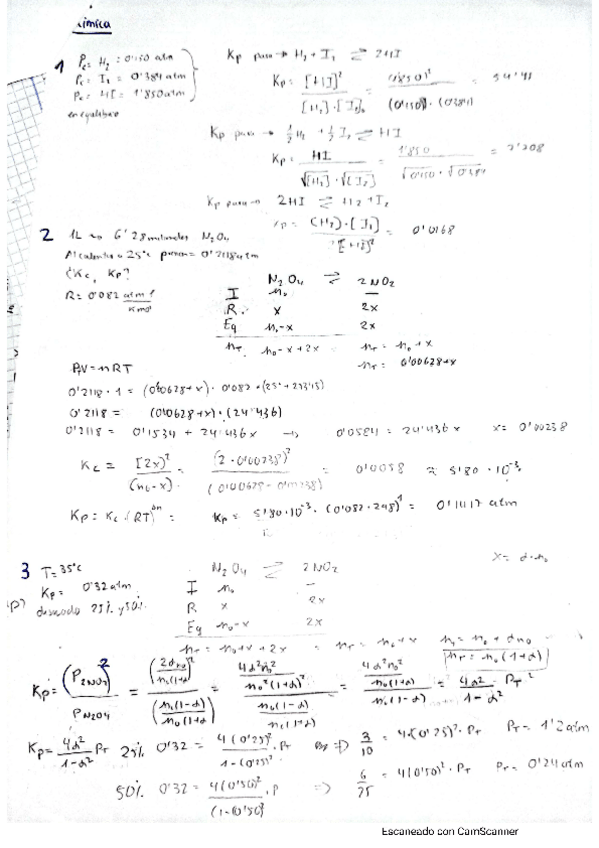 Química
1 Pc = H₂ : 0'150 atm
Pc = I₂ = 0'384 atm
Pc = HI = 1'850 atm
en equilibrio
Kp para → H₂ + I₂ ⇌ 2HI
Kp = [HI]² / [H₂]·[I₂] = (1'850)² / (0'150)·(0'384) =
Kp para → ½H₂ + ½I₂ ⇌ HI
Kp = HI / √[H₂]·√[I₂] = 1'850 / √0'150·√0'384 =
Kp para → 2HI ⇌ H₂ + I₂
Kp = (H₂)·[I₂] / [HI]² = 0'0168
2 1L → 6'28 milimoles N₂O₄
Al calentar a 25°C presion = 0'2118 atm
¿Kc, Kp?
R = 0'082 atm l / K mol
N₂O₄ ⇌ 2NO₂
I n₀ —
R x 2x
Eq n₀-x 2x
nT n₀-x+2x nT = n₀+x
nT = 0'00628+x
P·V = nRT
0'2118 · 1 = (0'00628+x) · 0'082 · (25+273'15)
0'2118 = (0'00628+x)·(24'436)
0'2118 = 0'1534 + 24'436x → 0'0584 = 24'436x x = 0'00238
Kc = [2x]² / (n₀-x) = (2·0'00238)² / (0'00628-0'00238) = 0'0058 ≈ 5'80·10⁻³
Kp = Kc (RT)^Δn = Kp = 5'80·10⁻³·(0'082·298)¹ = 0'1417 atm
3 T = 35°C
Kp = 0'32 atm
P) disociado 25% y 50%
N₂O₄ ⇌ 2NO₂ x = α·n₀
I n₀ —
R x 2x
Eq n₀-x 2x
nT = n₀+x+2x = nT = n₀+x nT = n₀+αn₀
nT = n₀(1+α)
Kp = (P2NO₂)² / PN2O4 = (2αn₀ / n₀(1+α))² / (n₀(1-α) / n₀(1+α)) = 4α²n₀² / n₀²(1+α)² / n₀(1-α) / n₀(1+α) = 4α²n₀² / n₀(1+α) / n₀(1-α) = 4α² / 1-α² PT²
Kp = 4α² / 1-α² PT 25% 0'32 = 4(0'25)² / 1-(0'25)² · PT ⇒ 3/10 = 4·(0'25)²·PT PT = 1'2 atm
50% 0'32 = 4(0'50)² / (1-(0'50)² · P ⇒ 6/25 = 4(0'50)²·PT PT = 0'24 atm
Escaneado con CamScanner